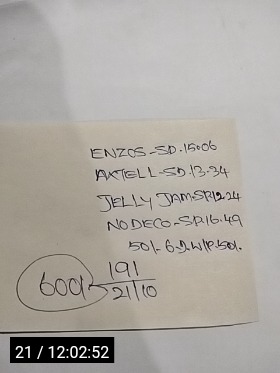 ENZOS-SD.15.06
AXTELL-SD.13.34
JELLY JAM-SR12.24
NODECO-SR16.49
501-6.D.W/P.501.
6001- 191
21/10
21 / 12:02:52